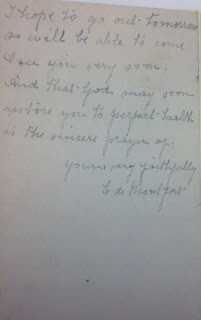 I hope to go out tomorrow
so will be able to come
& see you very soon.
And that God may soon
restore you to perfect health
is the sincere prayer of
yours very faithfully
C de Montfort